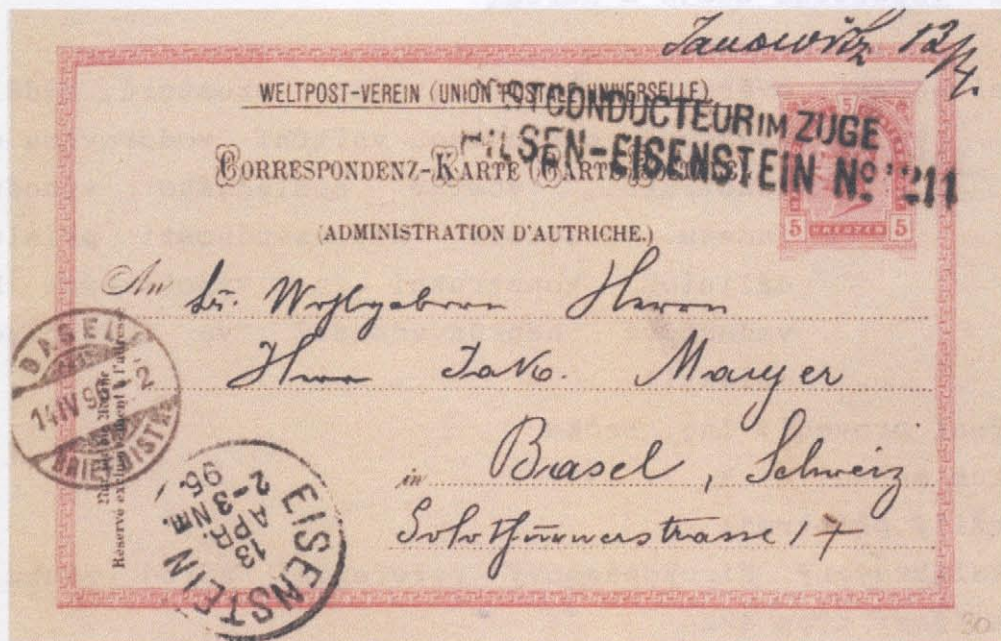 Janowitz 13/4.
WELTPOST-VEREIN (UNION POSTALE UNIVERSELLE).
POSTCONDUCTEUR IM ZUGE
PILSEN-EISENSTEIN No 211
CORRESPONDENZ-KARTE (CARTE POSTALE)
5
(ADMINISTRATION D'AUTRICHE.)
5 KREUZER 5
An Sr. Wohlgeborn Herrn
Herrn Jak. Mayer
in Basel, Schweiz
Solothurnerstrasse 17
BASEL
14 IV 96
BRIEF DISTR.
Réservé exclusivement à l'adresse
EISENSTEIN
13
AP
2-3
96
30